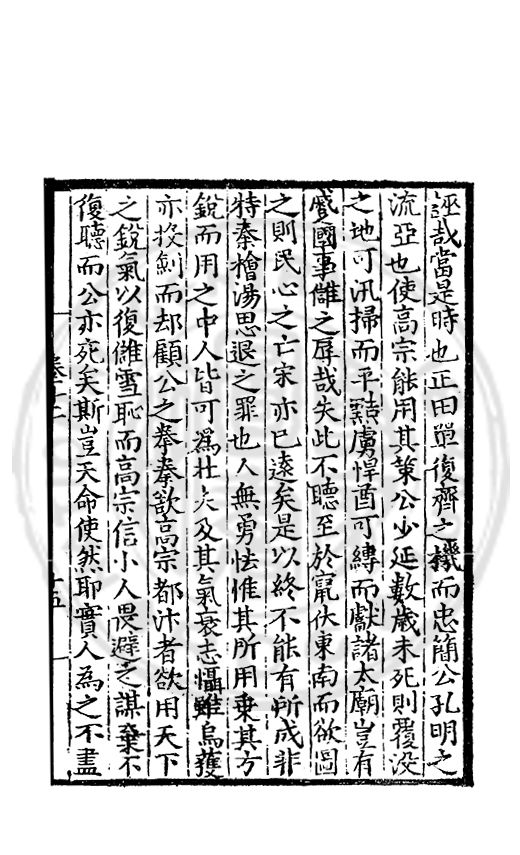 誣哉當是時也正田單復齊之機而忠簡公孔明之
流亞也使高宗能用其策公少延數歲未死則覆没
之地可汛掃而平黠虜悍酋可縛而獻諸太廟豈有
蹙國事讎之辱哉失此不聽至於竄伏東南而欲圖
之則民心之亡宋亦已遠矣是以終不能有所成非
特秦檜湯思退之罪也人無勇怯惟其所用乗其方
銳而用之中人皆可爲壯夫及其氣衰志懾雖烏獲
亦投劍而却顧公之拳拳欲高宗都汴者欲用天下
之銳氣以復讎雪恥而高宗信小人畏避之謀棄不
復聽而公亦死矣斯豈天命使然耶實人為之不盡
卷十二
十五